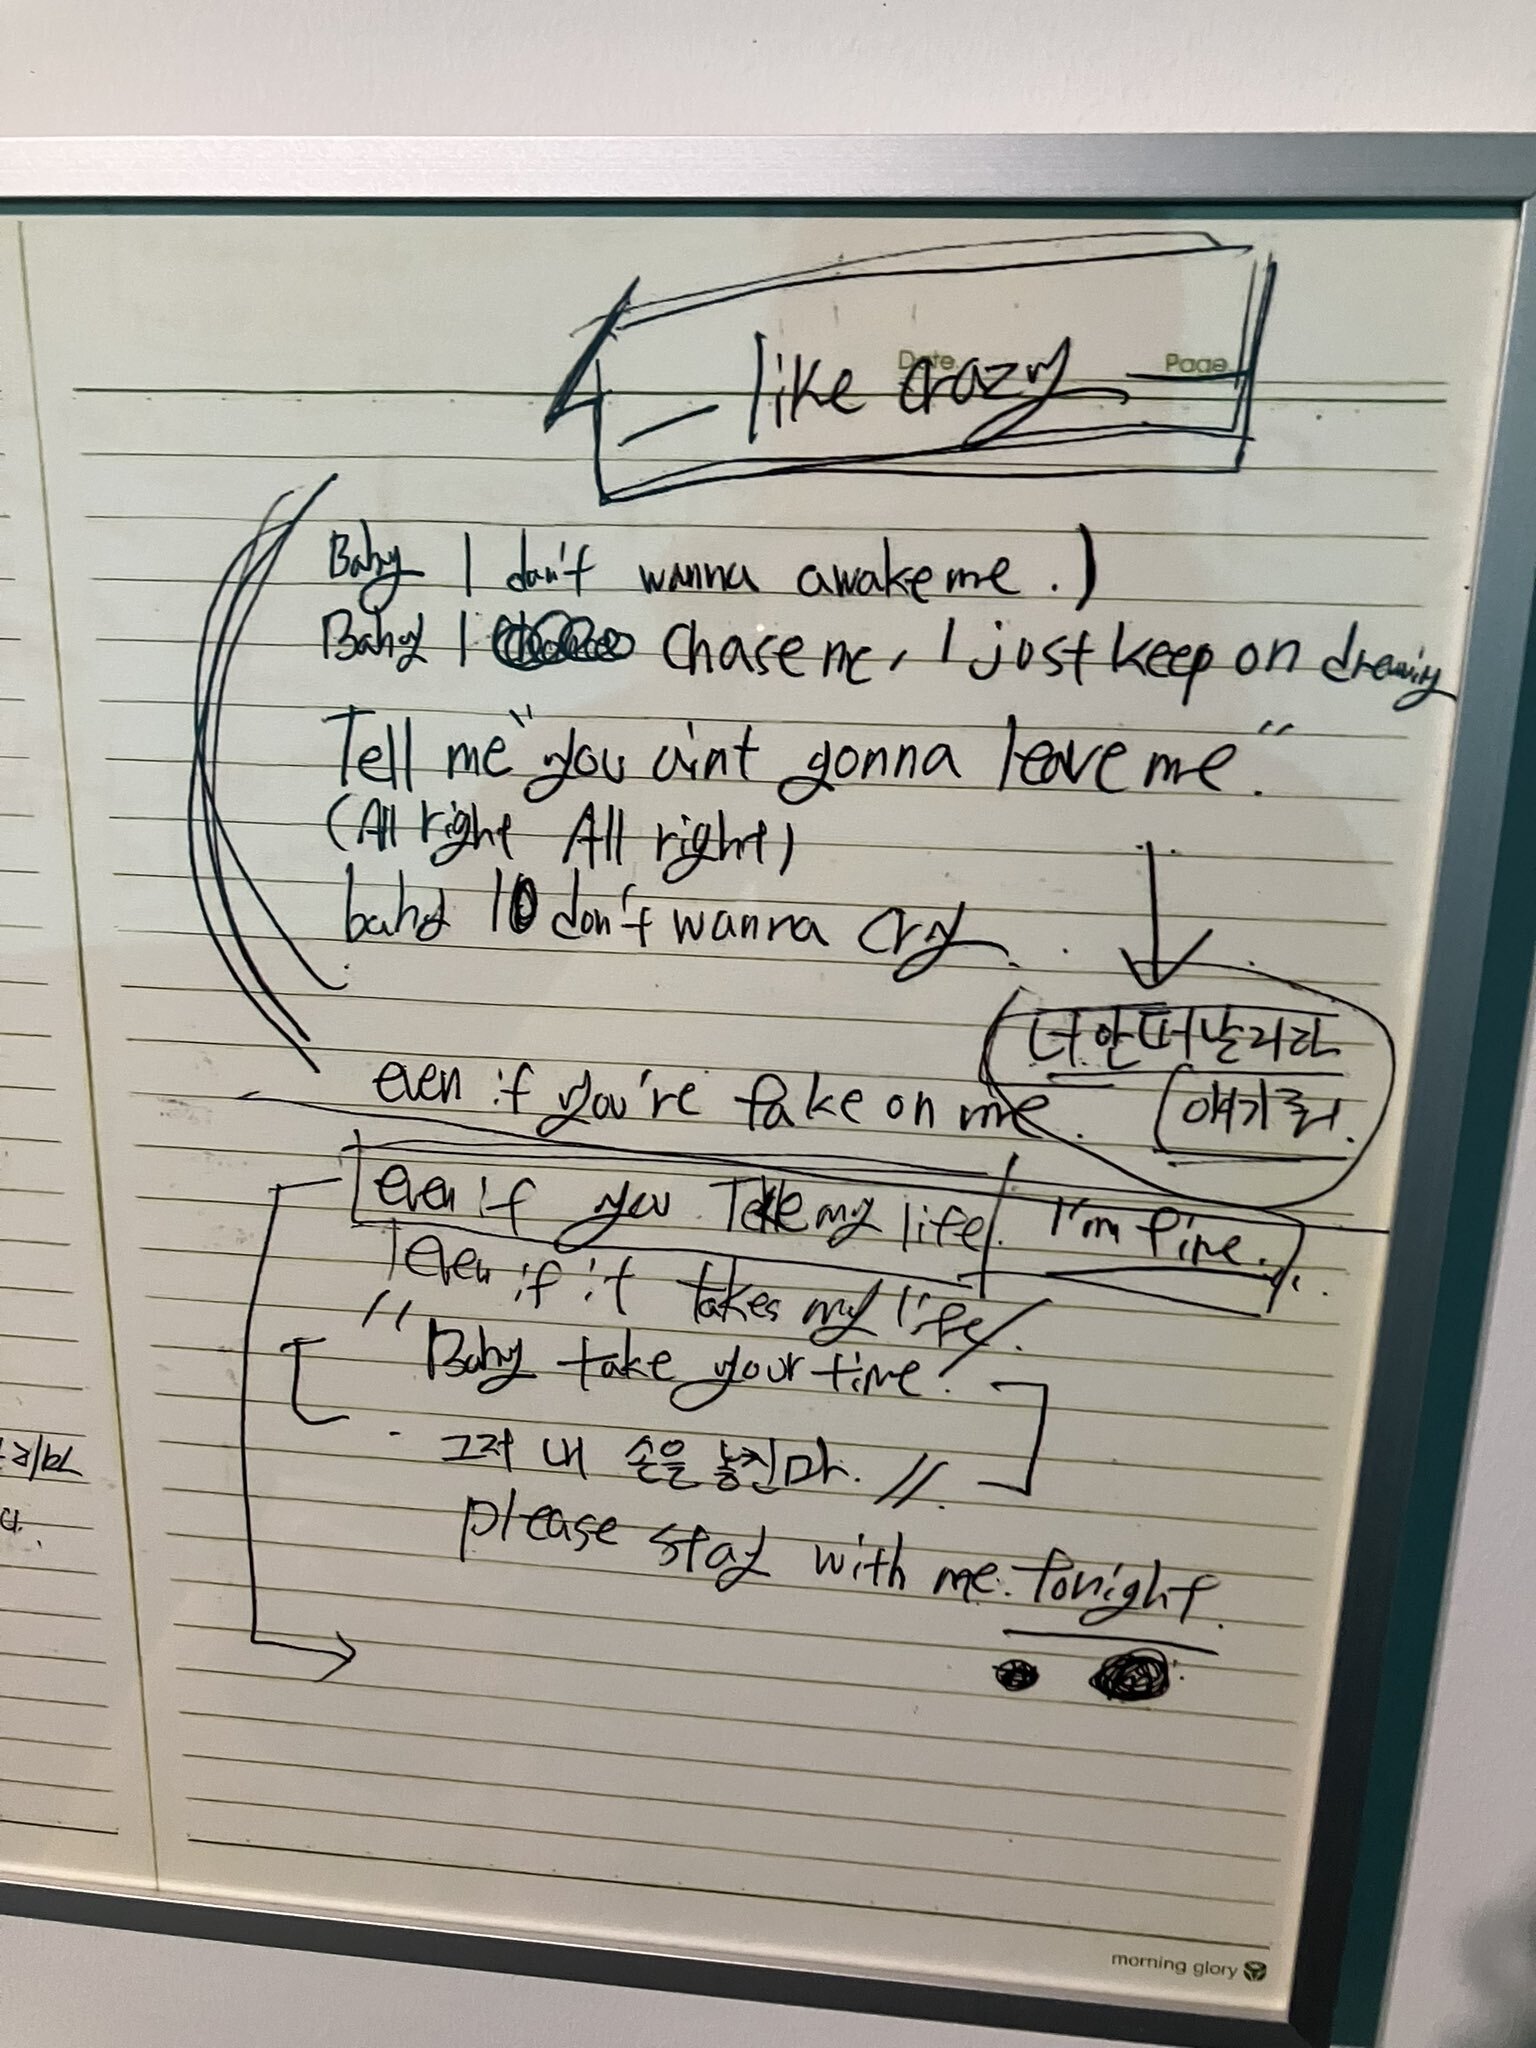 Date Page
like crazy
Baby I don't wanna awake me.)
Baby I chase me, I just keep on
Tell me "you ain't gonna leave me."
(All right All right)
baby I don't wanna cry.
너 안 떠날거라
얘기 줘.
even if you're fake on me.
even if you Take my life. I'm fine.
even if it takes my life.
"Baby take your time.
그저 내 손을 놓진마. //.
please stay with me. tonight.
morning glory